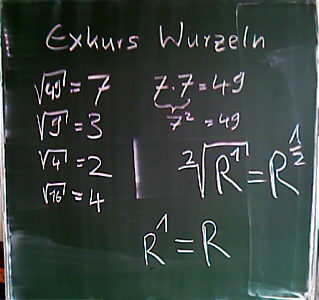 Exkurs Wurzeln
√49 = 7
√9 = 3
√4 = 2
√16 = 4
7·7 = 49
7² = 49
²√R¹ = R^½
R¹ = R